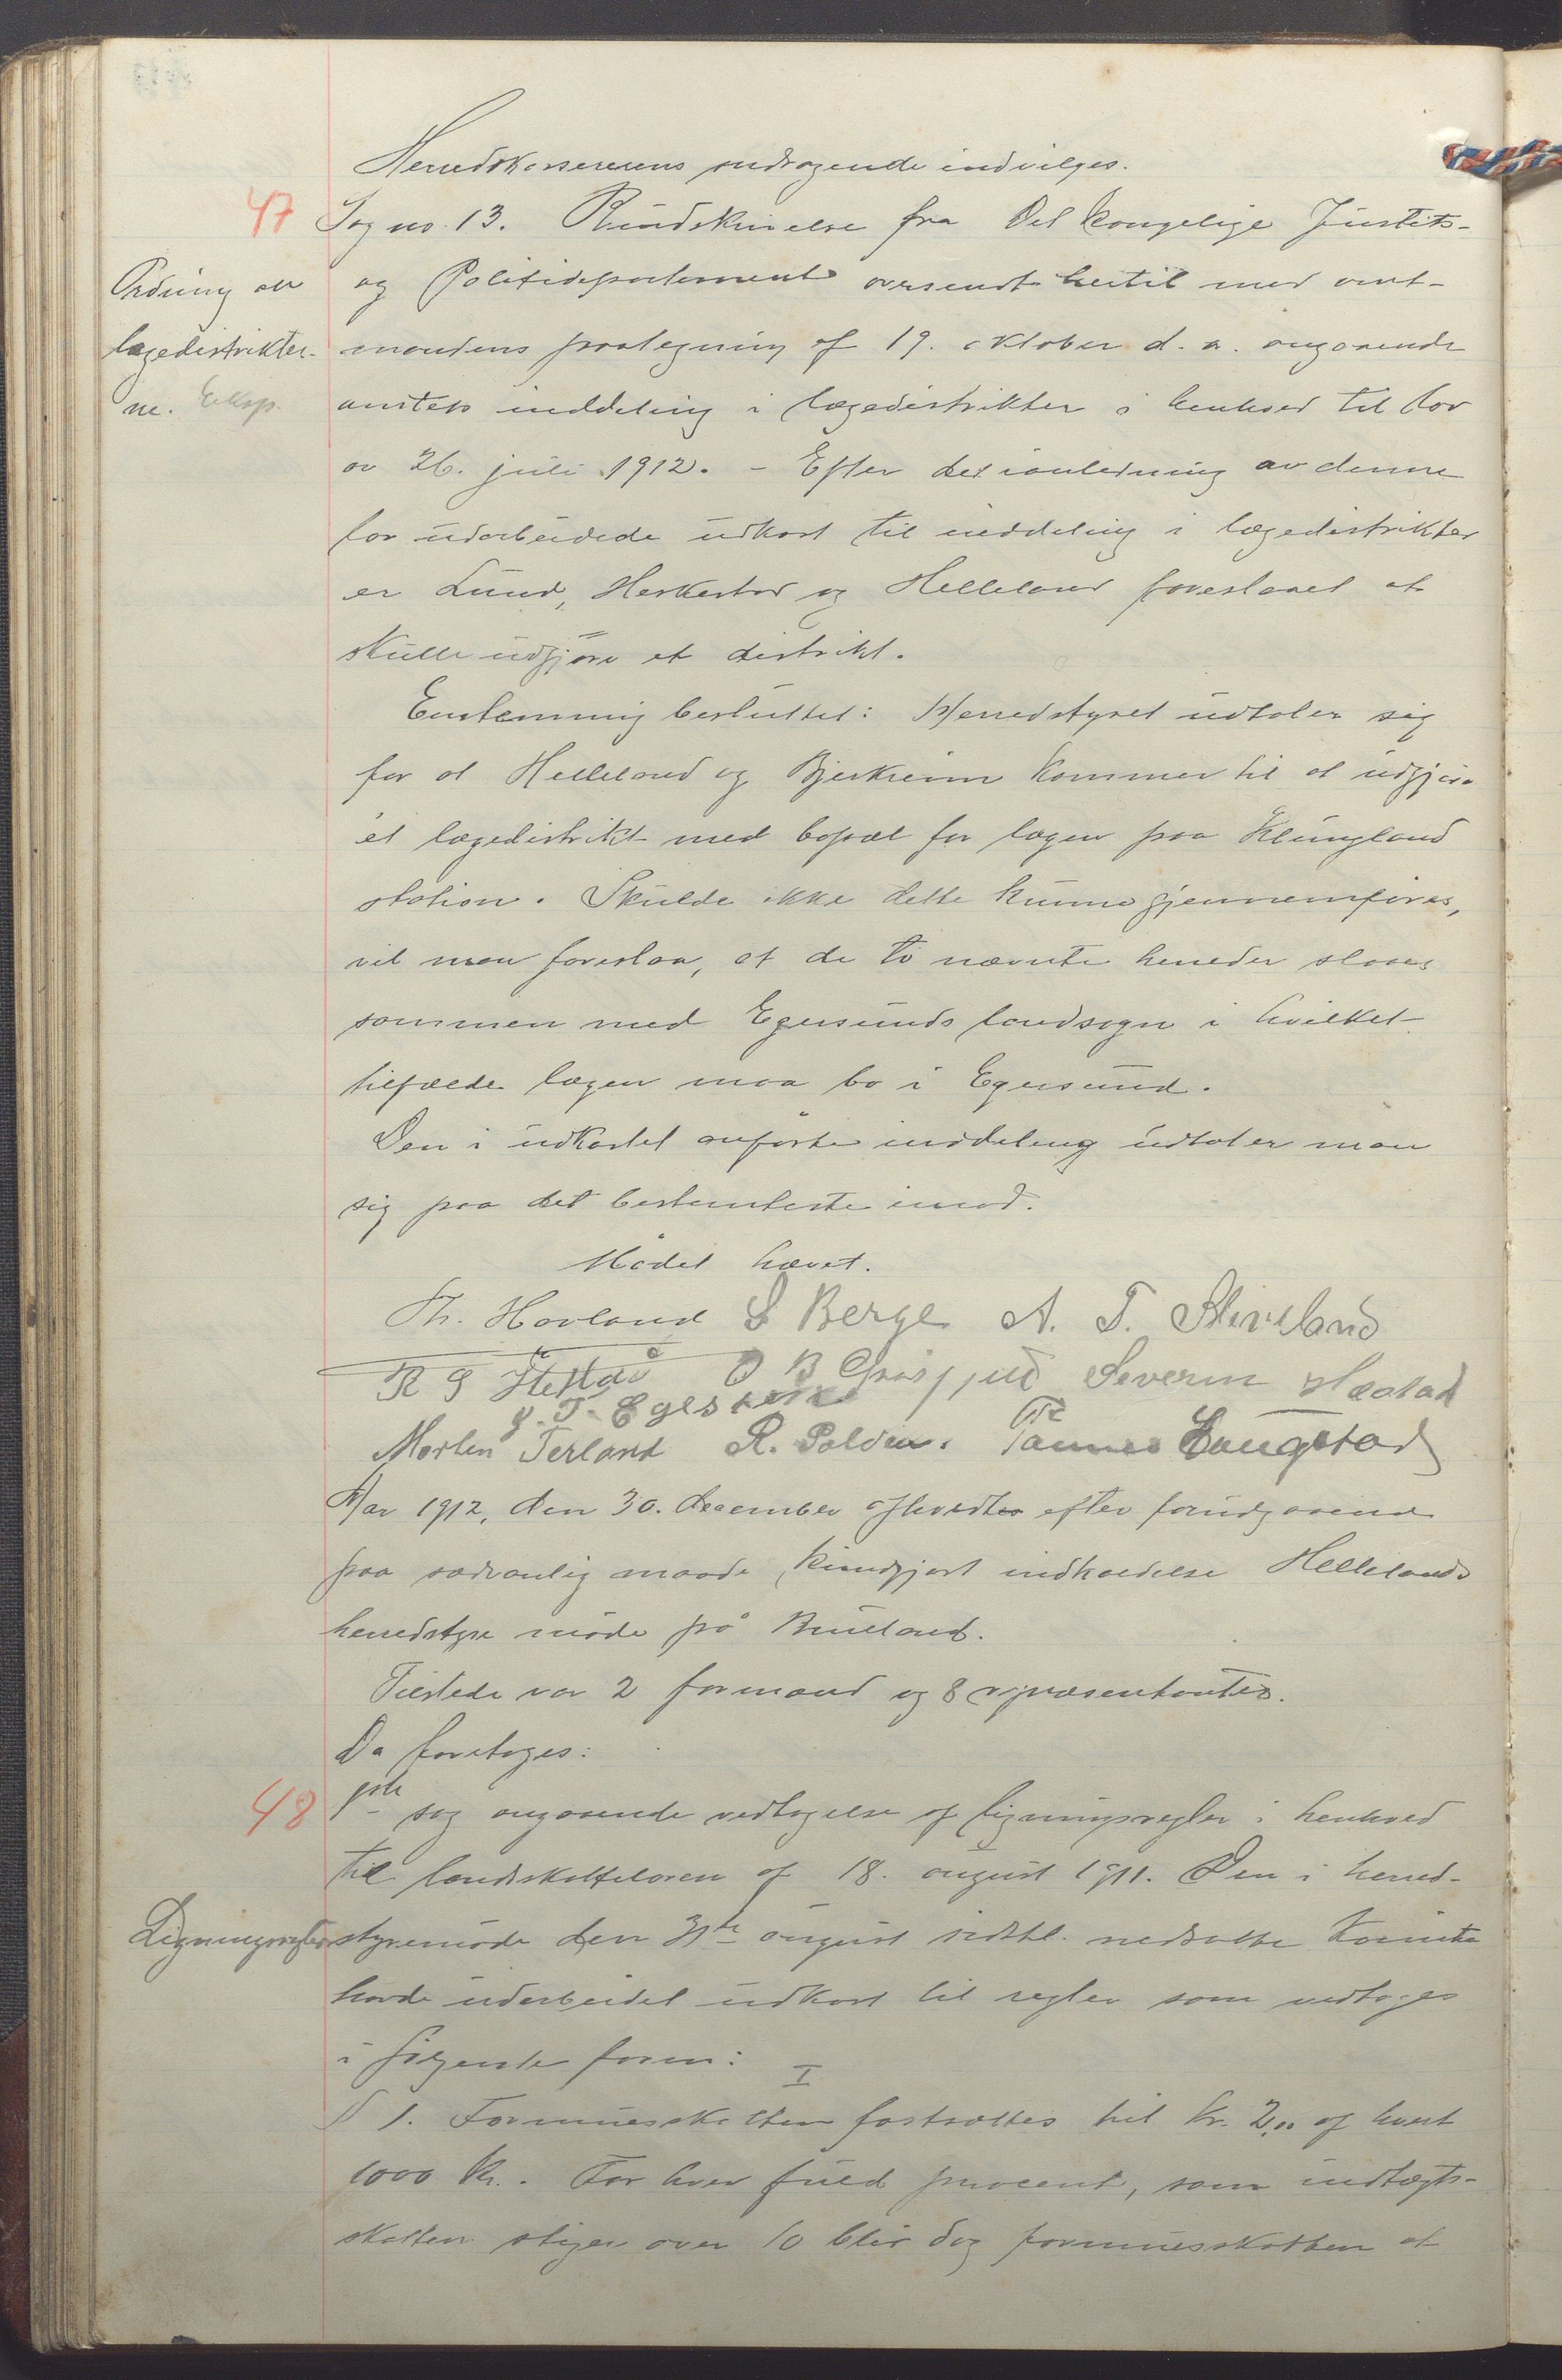 Herredskassererens andragende indvilges.
47 Sag no. 13. Rundskrivelse fra Det kongelige Justits-
og Politidepartement oversendt hertil med amt-
Ordning av
mandens paategning af 19. oktober d. a. angaaende
lægedistrikter-
amtets inddeling i lægedistrikter i henhold til lov
ne. Eksp.
av 26. juli 1912. - Efter det i anledning av denne
lov udarbeidede udkast til inddeling i lægedistrikter
er Lund, Heskestad og Helleland foreslaaet at
skulle udgjøre et distrikt.
Enstemmig besluttet: Herredstyret udtaler sig
for at Helleland og Bjerkreim kommer til at udgjøre
et lægedistrikt med bopæl for lægen paa Klungland
station. Skulde ikke dette kunne gjennemføres,
vil man foreslaa, at de to nævnte herreder slaaes
sammen med Egersunds landsogn i hvilket
tilfælde lægen maa bo i Egersund.
Den i udkastet anførte inddeling udtaler man
sig paa det bestemteste imod.
Mødet hævet.
Th. Hovland S Berge A. T. Skiveland
R G O B Severin
J. T. Egeskeid
Morten Terland R. Polden.
Aar 1912, den 30. december afholdtes efter forudgaaende
paa sædvanlig maade kundgjort indkaldelse Hellelands
herredstyre møde på Bruland.
Tilstede var 2 formænd og 8 repræsentanter.
Da foretoges:
48 1ste sag angaaende vedtagelse af ligningsregler i henhold
til landsskatteloven af 18. august 1911. Den i herred-
Ligningsregler
styremøde den 31te august sidstl. nedsatte komite
havde udarbeidet udkast til regler som vedtoges
i følgende form:
I
§ 1. Formuesskatten fastsættes til kr. 2,00 af hvert
1000 kr. For hver fuld procent, som indtægts-
skatten stiger over 10 blir dog formuesskatten at